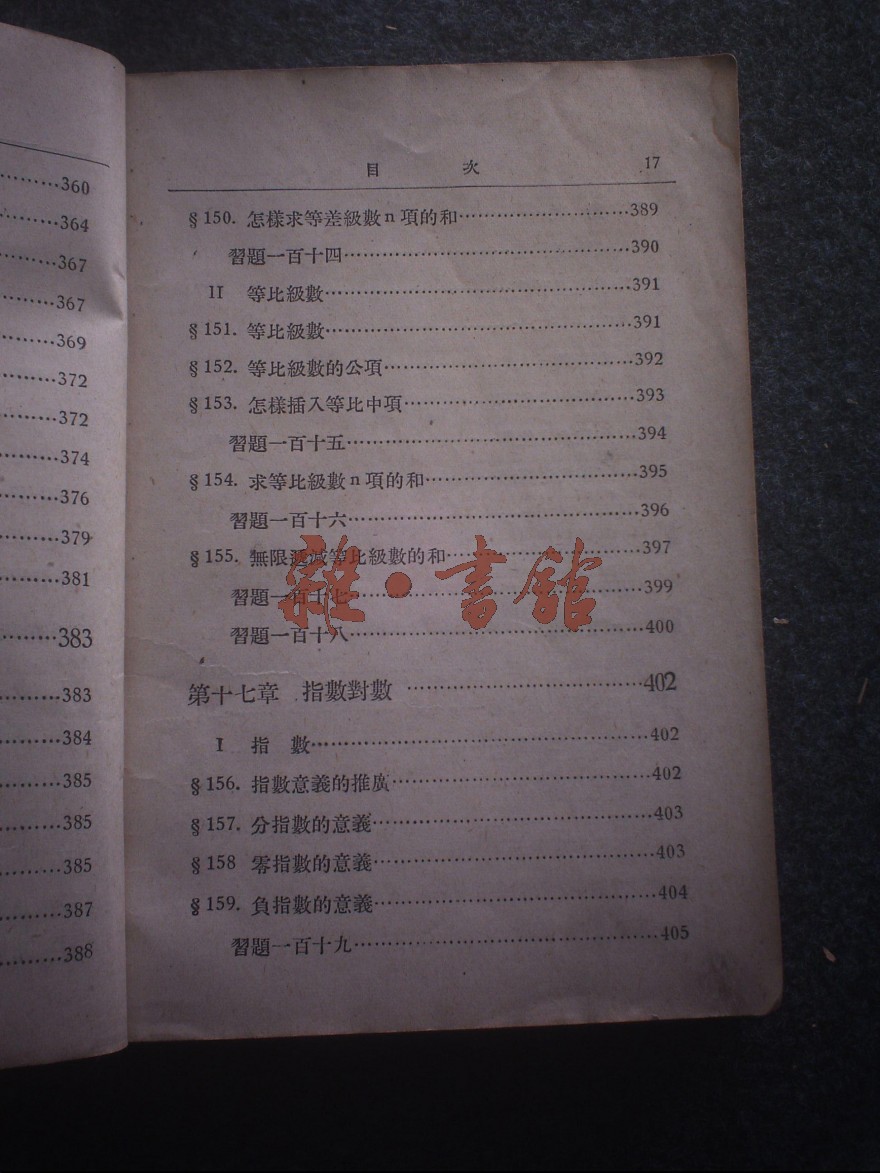 360
364
367
367
369
372
372
374
376
379
381
383
383
384
385
385
385
387
388
目 次 17
§150. 怎樣求等差級數n項的和……389
習題一百十四……390
II 等比級數……391
§151. 等比級數……391
§152. 等比級數的公項……392
§153. 怎樣插入等比中項……393
習題一百十五……394
§154. 求等比級數n項的和……395
習題一百十六……396
§155. 無限遞減等比級數的和……397
習題一百十七……399
習題一百十八……400
第十七章 指數對數……402
I 指 數……402
§156. 指數意義的推廣……402
§157. 分指數的意義……403
§158 零指數的意義……403
§159. 負指數的意義……404
習題一百十九……405
雜·書館